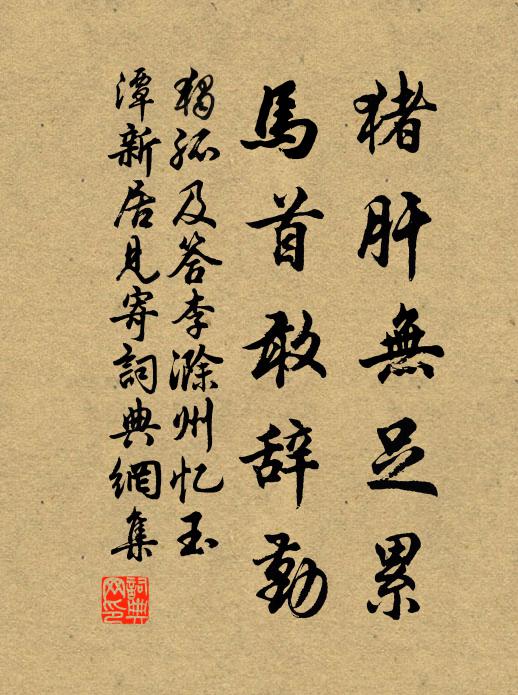 猪肝無足累
馬首敢辞勤
独孤及答李滁州忆玉
潭新居見寄詞典網集
詞典网印